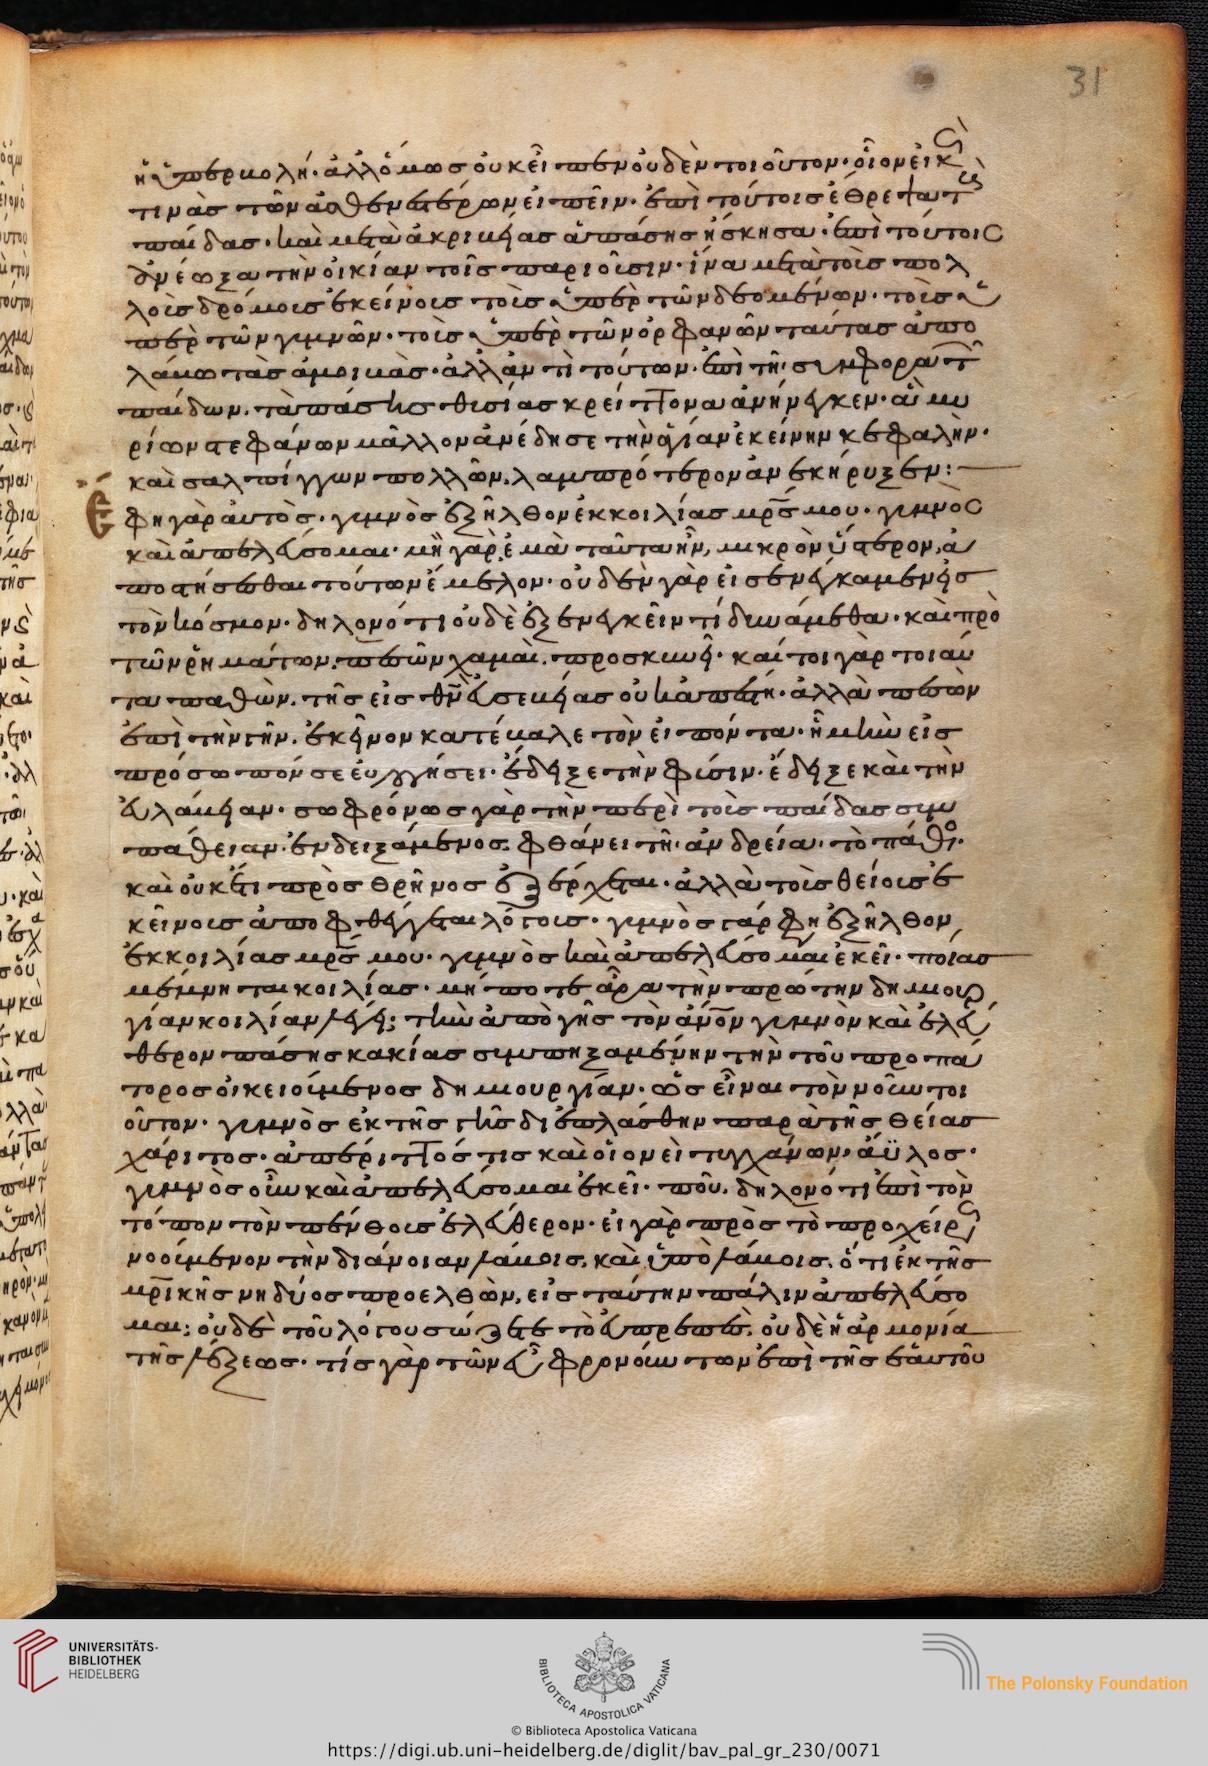 31
ἡ ὑπερβολή· ἀλλ' ὅμως οὐκ εἶπεν οὐδὲν τοιοῦτον· οἷον εἰκὸς
τινὰς τῶν ἀσθενεστέρων εἰπεῖν· ἐπὶ τούτοις ἔθρεψα τοὺς
παῖδας· καὶ μετὰ ἀκριβείας ἁπάσης ἤσκησα· ἐπὶ τούτοις
ἀνέωξα τὴν οἰκίαν τοῖς παριοῦσιν· ἵνα μετὰ τοὺς πολ
λοὺς δρόμους ἐκείνους τοὺς ὑπὲρ τῶν δεομένων· τοὺς ὑ
πὲρ τῶν γυμνῶν· τοὺς ὑπὲρ τῶν ὀρφανῶν ταύτας ἀπο
λάβω τὰς ἀμοιβάς· ἀλλ' ἀντὶ τούτων ἐπὶ τῇ συμφορᾷ τῶν
παίδων τὰ πάσης θυσίας κρείττονα ἀνήνεγκεν· αἳ μυ
ρίων στεφάνων μᾶλλον ἀνέδησε τὴν ἁγίαν ἐκείνην κεφαλήν·
καὶ σαλπίγγων πολλῶν λαμπρότερον ἀνεκήρυξεν:
Ἔφη γὰρ αὐτός· γυμνὸς ἐξῆλθον ἐκ κοιλίας μρς μου· γυμνὸς
καὶ ἀπελεύσομαι· μὴ γὰρ ἐμὰ ταῦτα ἦν, μικρὸν ὕστερον ἀ
ποστήσεσθαι τούτων ἔμελλον· οὐδὲν γὰρ εἰσενέγκαμεν εἰς
τὸν κόσμον· δηλονότι οὐδὲ ἐξενεγκεῖν τί δυνάμεθα· καὶ πρὸ
τῶν ῥημάτων πεσὼν χαμαὶ προσκυνεῖ· καίτοι γὰρ τοιαῦ
τα παθὼν τῆς εἰς θν εὐσεβείας οὐκ ἀπέστη· ἀλλὰ πεσὼν
ἐπὶ τὴν γῆν ἐκεῖνον κατέβαλε τὸν εἰπόντα· ἦ μὴν εἰς
πρόσωπόν σε εὐλογήσει· ἔδειξε τὴν φύσιν· ἔδειξε καὶ τὴν
εὐλάβειαν· σωφρόνως γὰρ τὴν περὶ τοὺς παῖδας συμ
πάθειαν ἐνδειξάμενος φθάνει τῇ ἀνδρείᾳ τὸ πάθος·
καὶ οὐκέτι πρὸς θρῆνος ἐξέρχεται· ἀλλὰ τοὺς θείους ἐ
κείνους ἀποφθέγγεται λόγους· γυμνὸς γάρ φη ἐξῆλθον
ἐκ κοιλίας μρς μου· γυμνὸς καὶ ἀπελεύσομαι ἐκεῖ· ποίας
μέμνηται κοιλίας· μήποτε ἆρα τὴν πρώτην δημιουρ
γίαν κοιλίαν λέγει; τὴν ἀπὸ γῆς τὸν ἄνον γυμνὸν καὶ ἐλεύ
θερον πάσης κακίας συμπηξαμένην τὴν τοῦ προπά
τορος οἰκειούμενος δημιουργίαν· ὡς εἶναι τὸν νοῦν τοι
οῦτον· γυμνὸς ἐκ τῆς γῆς διεπλάσθην παρὰ τῆς θείας
χάριτος· ἀπέριττός τις καὶ οἱονεὶ τυγχάνων ἄϋλος·
γυμνὸς οὖν καὶ ἀπελεύσομαι ἐκεῖ· ποῦ, δηλονότι ἐπὶ τὸν
τόπον τὸν πένθους ἐλεύθερον· εἰ γὰρ πρὸς τὸ προχείρως
νοούμενον τὴν διάνοιαν λάβοις, καὶ ὑπολάβοις, ὅτι ἐκ τῆς
μρικῆς νηδύος προελθών, εἰς ταύτην πάλιν ἀπελεύσο
μαι; οὐδὲ τοῦ λόγου σώζεται τὸ εὐπρεπές, οὐδὲ ἡ ἁρμονία
τῆς λέξεως· τίς γὰρ τῶν εὖ φρονούντων ἐπὶ τῆς ἑαυτοῦ
UNIVERSITÄTS-
BIBLIOTHEK
HEIDELBERG
BIBLIOTECA APOSTOLICA VATICANA
The Polonsky Foundation
© Biblioteca Apostolica Vaticana
https://digi.ub.uni-heidelberg.de/diglit/bav_pal_gr_230/0071